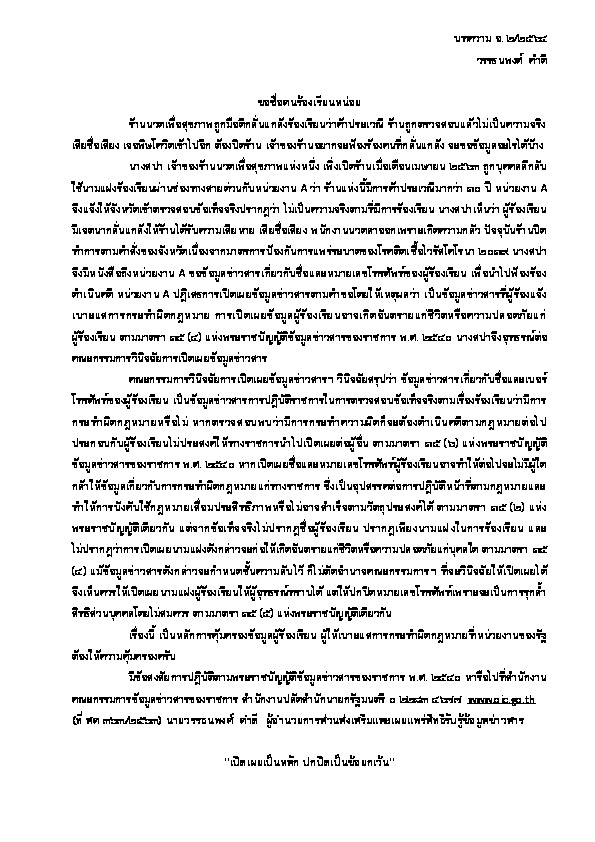 บทความ อ. ๒/๒๕๖๔
วรรธนพงศ์ คำดี
ขอชื่อคนร้องเรียนหน่อย
ร้านนวดเพื่อสุขภาพถูกมือดีกลั่นแกล้งร้องเรียนว่าค้าประเวณี ร้านถูกตรวจสอบแล้วไม่เป็นความจริง
เสียชื่อเสียง เจอพิษโควิดเข้าไปอีก ต้องปิดร้าน เจ้าของร้านอยากจะฟ้องร้องคนที่กลั่นแกล้ง จะขอข้อมูลอะไรได้บ้าง
นางสปา เจ้าของร้านนวดเพื่อสุขภาพแห่งหนึ่ง เพิ่งเปิดร้านเมื่อเดือนเมษายน ๒๕๖๓ ถูกบุคคลลึกลับ
ใช้นามแฝงร้องเรียนผ่านช่องทางสายด่วนกับหน่วยงาน A ว่า ร้านแห่งนี้มีการค้าประเวณีมากว่า ๑๐ ปี หน่วยงาน A
จึงแจ้งให้จังหวัดเข้าตรวจสอบข้อเท็จจริงปรากฏว่า ไม่เป็นความจริงตามที่มีการร้องเรียน นางสปาเห็นว่า ผู้ร้องเรียน
มีเจตนากลั่นแกล้งให้ร้านได้รับความเสียหาย เสียชื่อเสียง พนักงานนวดลาออกเพราะเกิดความกลัว ปัจจุบันร้านปิด
ทำการตามคำสั่งของจังหวัดเนื่องจากมาตรการป้องกันการแพร่ระบาดของโรคติดเชื้อไวรัสโคโรนา ๒๐๑๙ นางสปา
จึงมีหนังสือถึงหน่วยงาน A ขอข้อมูลข่าวสารเกี่ยวกับชื่อและหมายเลขโทรศัพท์ของผู้ร้องเรียน เพื่อนำไปฟ้องร้อง
ดำเนินคดี หน่วยงาน A ปฏิเสธการเปิดเผยข้อมูลข่าวสารตามคำขอโดยให้เหตุผลว่า เป็นข้อมูลข่าวสารที่ผู้ร้องแจ้ง
เบาะแสการกระทำผิดกฎหมาย การเปิดเผยข้อมูลผู้ร้องเรียนอาจเกิดอันตรายแก่ชีวิตหรือความปลอดภัยแก่
ผู้ร้องเรียน ตามมาตรา ๑๕ (๔) แห่งพระราชบัญญัติข้อมูลข่าวสารของราชการ พ.ศ. ๒๕๔๐ นางสปาจึงอุทธรณ์ต่อ
คณะกรรมการวินิจฉัยการเปิดเผยข้อมูลข่าวสาร
คณะกรรมการวินิจฉัยการเปิดเผยข้อมูลข่าวสารฯ วินิจฉัยสรุปว่า ข้อมูลข่าวสารเกี่ยวกับชื่อและเบอร์
โทรศัพท์ของผู้ร้องเรียน เป็นข้อมูลข่าวสารการปฏิบัติราชการในการตรวจสอบข้อเท็จจริงตามเรื่องร้องเรียนว่ามีการ
กระทำผิดกฎหมายหรือไม่ หากตรวจสอบพบว่ามีการกระทำความผิดก็จะต้องดำเนินคดีตามกฎหมายต่อไป
ประกอบกับผู้ร้องเรียนไม่ประสงค์ให้ทางราชการนำไปเปิดเผยต่อผู้อื่น ตามมาตรา ๑๕ (๖) แห่งพระราชบัญญัติ
ข้อมูลข่าวสารของราชการ พ.ศ. ๒๕๔๐ หากเปิดเผยชื่อและหมายเลขโทรศัพท์ผู้ร้องเรียนอาจทำให้ต่อไปจะไม่มีผู้ใด
กล้าให้ข้อมูลเกี่ยวกับการกระทำผิดกฎหมายแก่ทางราชการ ซึ่งเป็นอุปสรรคต่อการปฏิบัติหน้าที่ตามกฎหมายและ
ทำให้การบังคับใช้กฎหมายเสื่อมประสิทธิภาพหรือไม่อาจสำเร็จตามวัตถุประสงค์ได้ ตามมาตรา ๑๕ (๒) แห่ง
พระราชบัญญัติเดียวกัน แต่จากข้อเท็จจริงไม่ปรากฏชื่อผู้ร้องเรียน ปรากฏเพียงนามแฝงในการร้องเรียน และ
ไม่ปรากฏว่าการเปิดเผยนามแฝงดังกล่าวจะก่อให้เกิดอันตรายแก่ชีวิตหรือความปลอดภัยแก่บุคคลใด ตามมาตรา ๑๕
(๔) แม้ข้อมูลข่าวสารดังกล่าวจะกำหนดชั้นความลับไว้ ก็ไม่ตัดอำนาจคณะกรรมการฯ ที่จะวินิจฉัยให้เปิดเผยได้
จึงเห็นควรให้เปิดเผยนามแฝงผู้ร้องเรียนให้ผู้อุทธรณ์ทราบได้ แต่ให้ปกปิดหมายเลขโทรศัพท์เพราะจะเป็นการรุกล้ำ
สิทธิส่วนบุคคลโดยไม่สมควร ตามมาตรา ๑๕ (๕) แห่งพระราชบัญญัติเดียวกัน
เรื่องนี้ เป็นหลักการคุ้มครองข้อมูลผู้ร้องเรียน ผู้ให้เบาะแสการกระทำผิดกฎหมายที่หน่วยงานของรัฐ
ต้องให้ความคุ้มครองครับ
มีข้อสงสัยการปฏิบัติตามพระราชบัญญัติข้อมูลข่าวสารของราชการ พ.ศ. ๒๕๔๐ หารือไปที่สำนักงาน
คณะกรรมการข้อมูลข่าวสารของราชการ สำนักงานปลัดสำนักนายกรัฐมนตรี ๐ ๒๒๘๓ ๔๖๗๗ www.oic.go.th
(ที่ สค ๓๖๓/๒๕๖๓) นายวรรธนพงศ์ คำดี ผู้อำนวยการส่วนส่งเสริมและเผยแพร่สิทธิรับรู้ข้อมูลข่าวสาร
"เปิดเผยเป็นหลัก ปกปิดเป็นข้อยกเว้น"